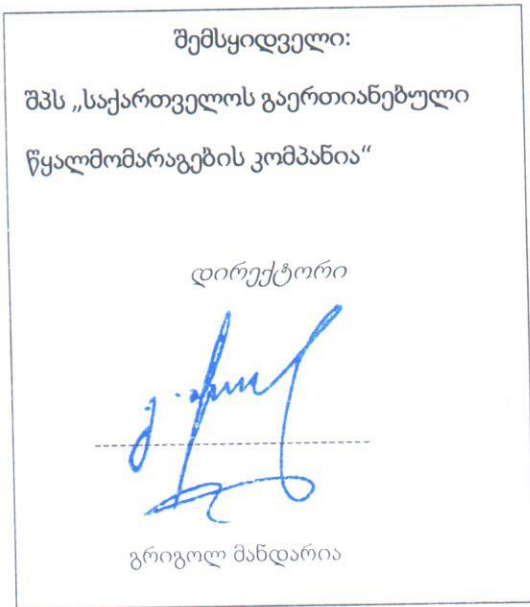 შემსყიდველი:
შპს „საქართველოს გაერთიანებული
წყალმომარაგების კომპანია“
დირექტორი
გრიგოლ მანდარია